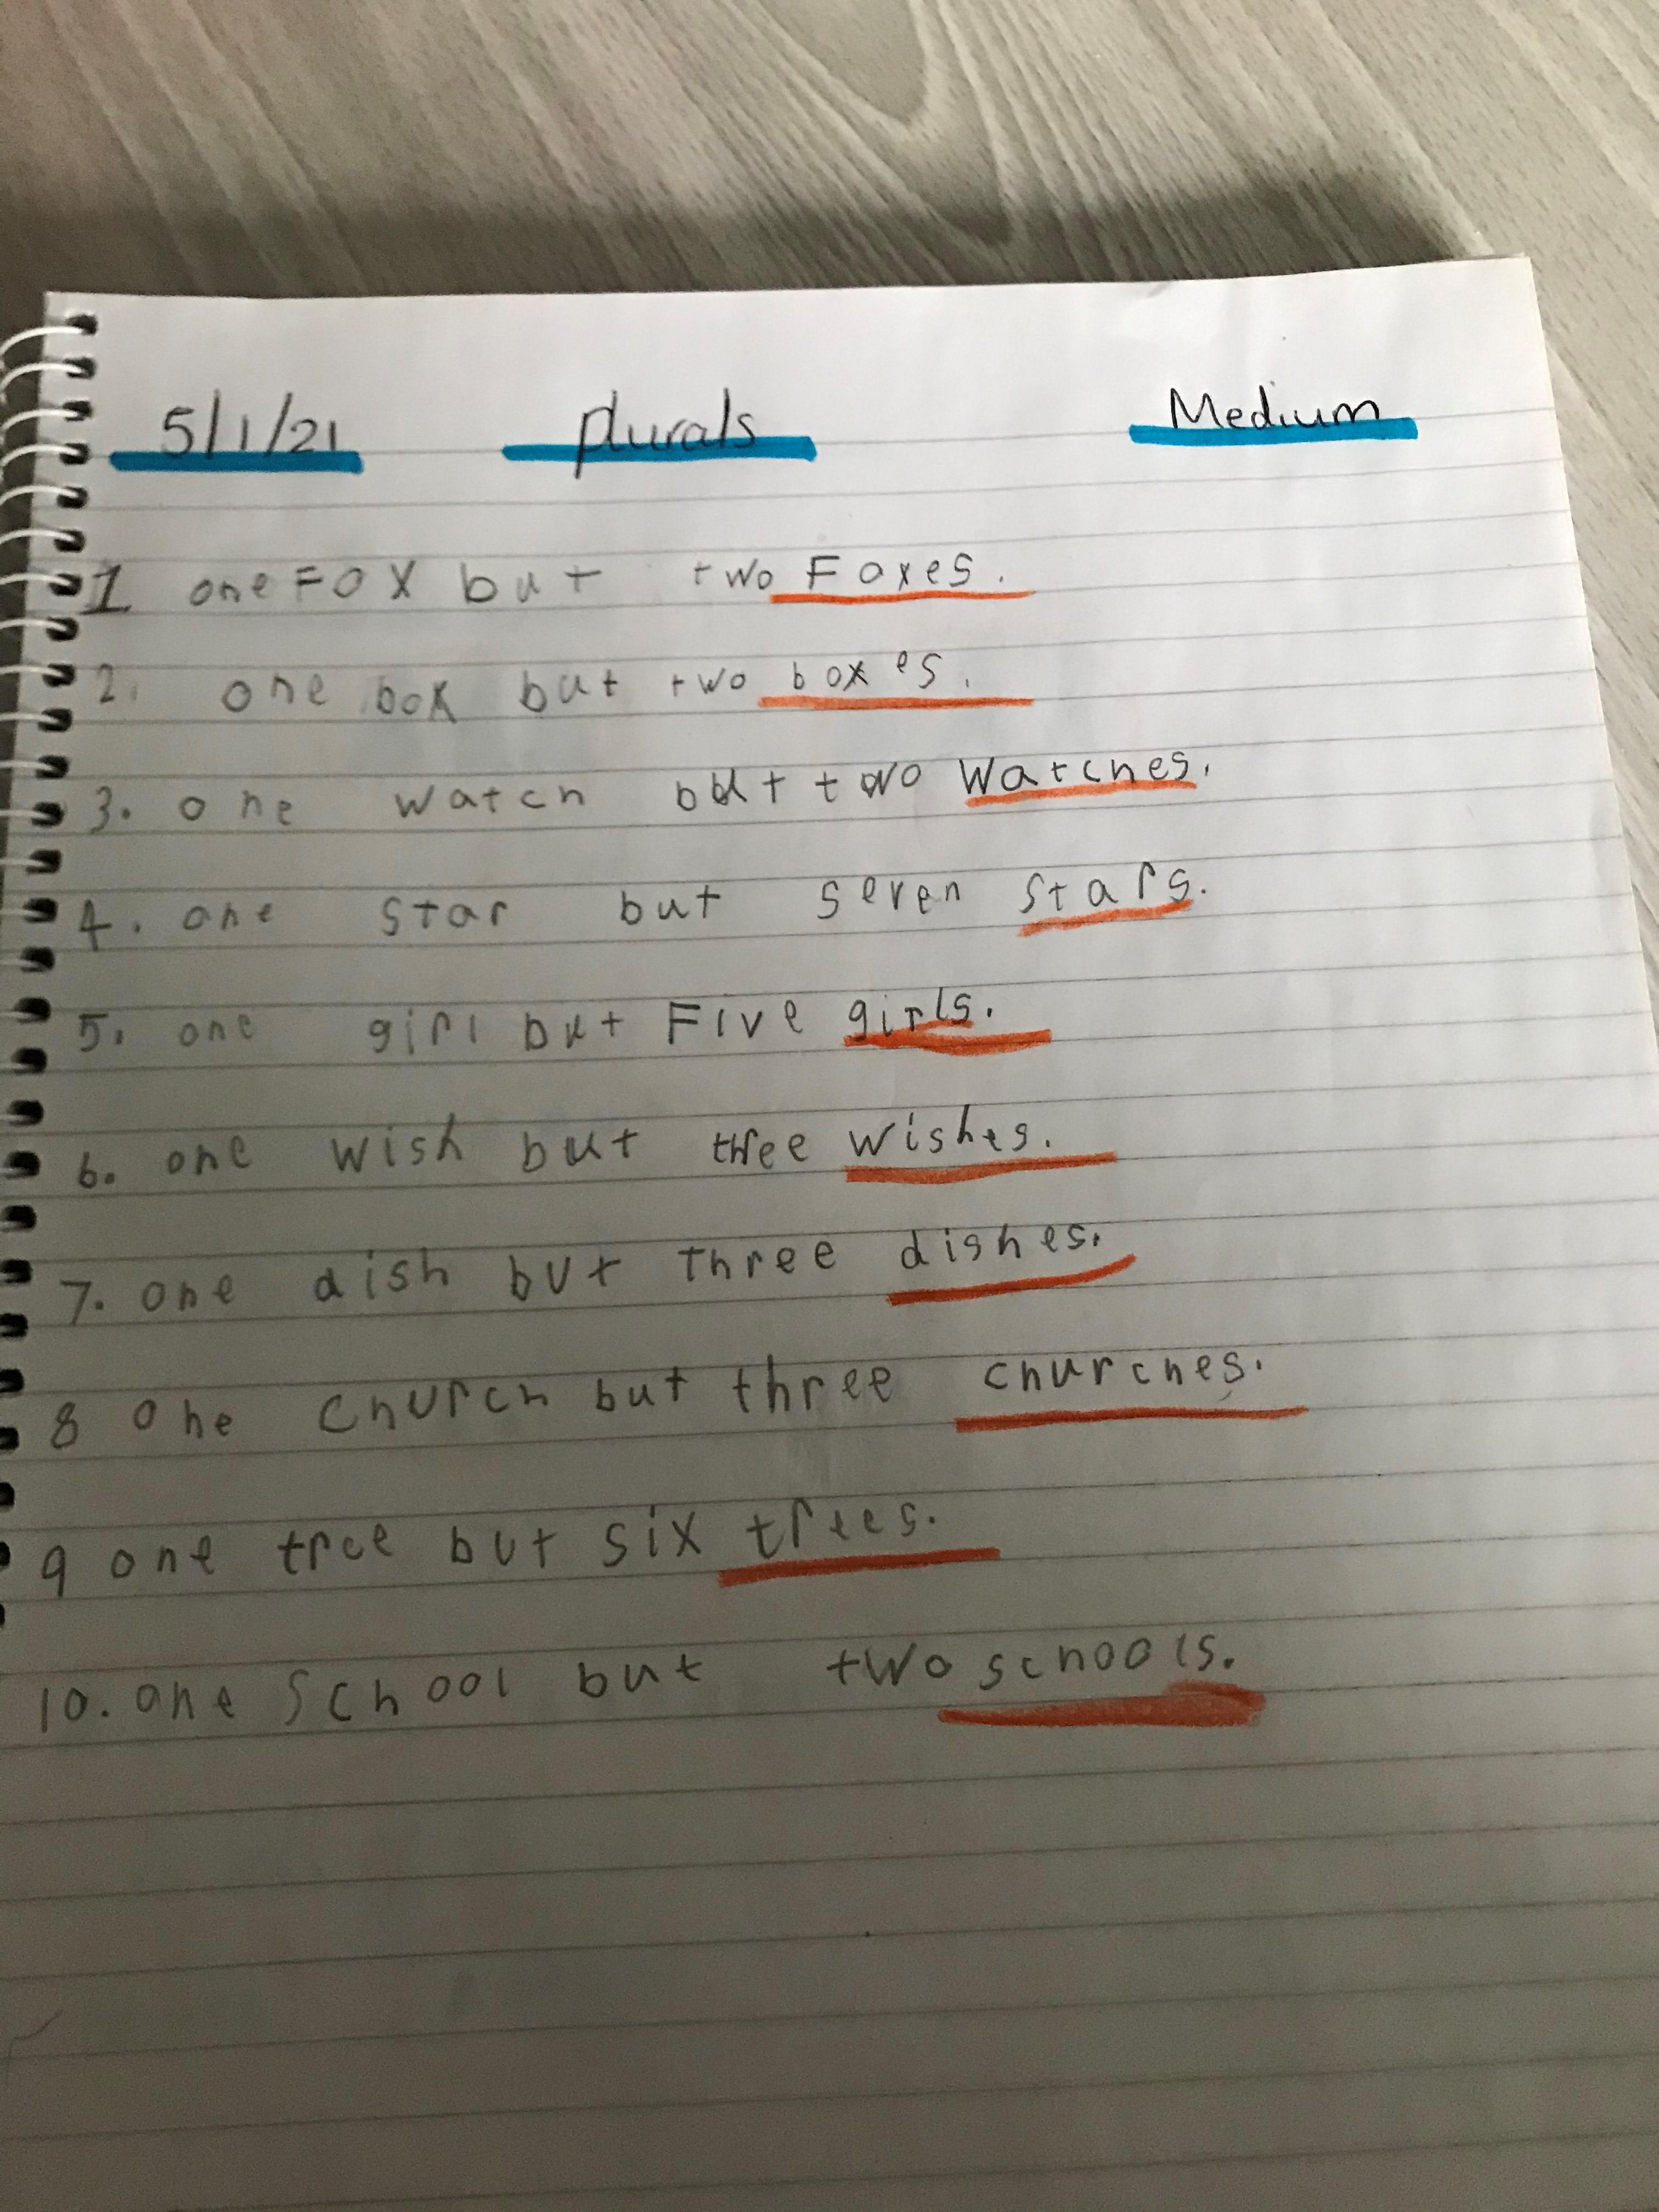 5/1/21 plurals Medium
1 one FOX but two Foxes.
2. one box but two boxes.
3. one watch but two Watches.
4. one star but seven stars.
5. one girl but Five girls.
6. one wish but three wishes.
7. one dish but three dishes.
8 one church but three churches.
9 one tree but six trees.
10. one school but two schools.